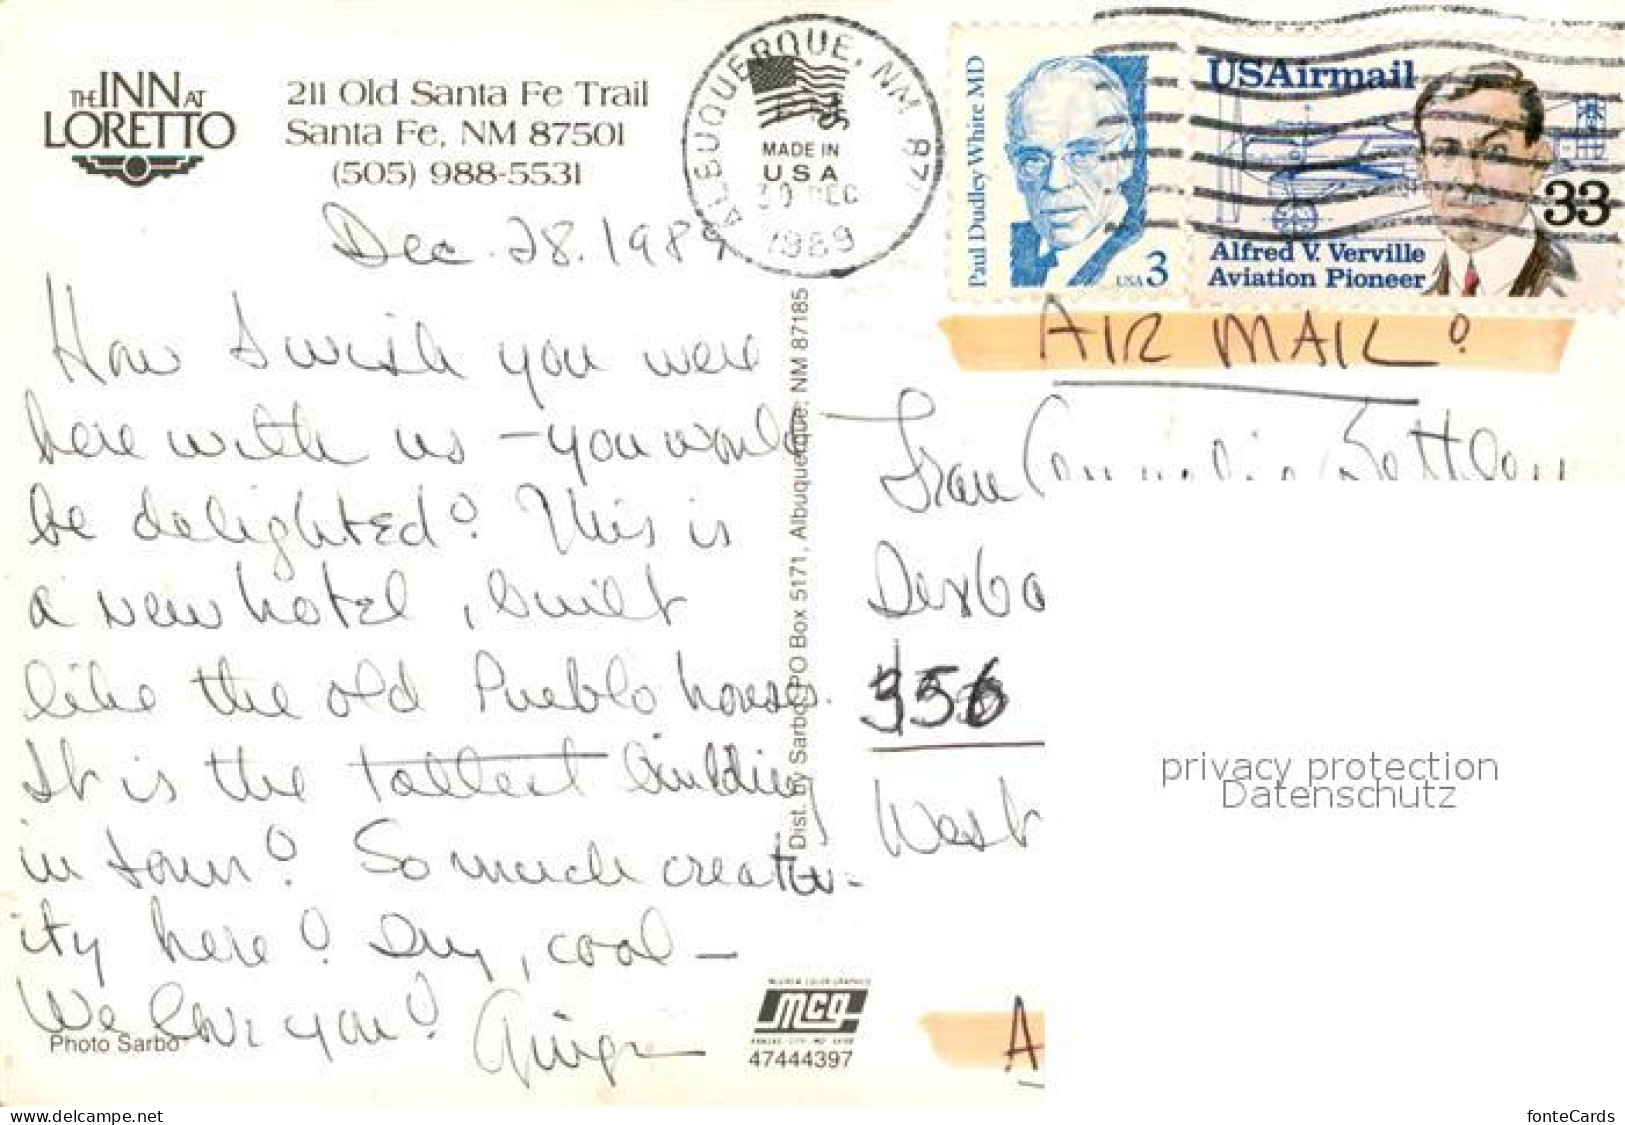 THE INN AT
LORETTO
211 Old Santa Fe Trail
Santa Fe, NM 87501
(505) 988-5531
ALBUQUERQUE, NM 87
MADE IN
USA
30 DEC
1989
Paul Dudley White MD
USA 3
USAirmail
33
Alfred V. Verville
Aviation Pioneer
Dec. 28. 1989
How I wish you were
here with us - you would
be delighted! This is
a new hotel, built
like the old Pueblo houses.
It is the tallest building
in town! So much creativ-
ity here! Dry, cool -
We love you! Ginger
AIR MAIL!
Frau
356
West
A
Dist. by Sarbo, PO Box 5171, Albuquerque, NM 87185
Photo Sarbo
mcg
47444397
privacy protection
Datenschutz
www.delcampe.net
fonteCards